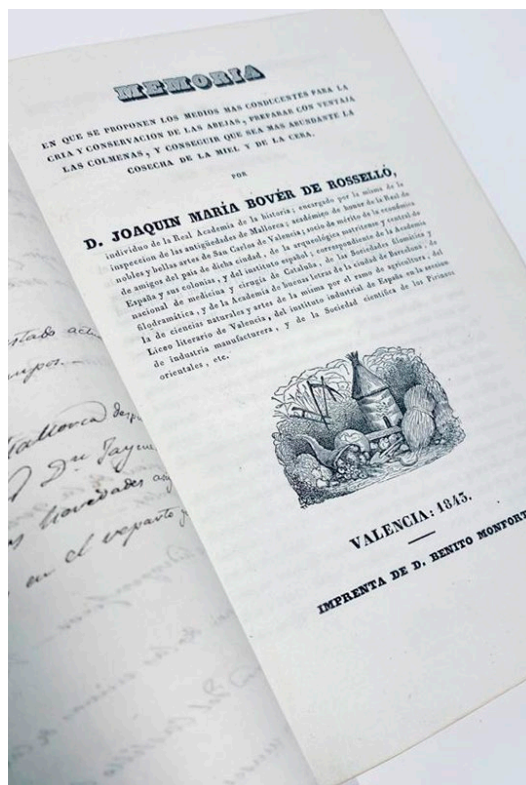 MEMORIA
EN QUE SE PROPONEN LOS MEDIOS MAS CONDUCENTES PARA LA
CRIA Y CONSERVACION DE LAS ABEJAS, PREPARAR CON VENTAJA
LAS COLMENAS, Y CONSEGUIR QUE SEA MAS ABUNDANTE LA
COSECHA DE LA MIEL Y DE LA CERA.
POR
D. JOAQUIN MARÍA BOVÉR DE ROSSELLÓ,
individuo de la Real Academia de la historia; encargado por la misma de la
inspeccion de las antigüedades de Mallorca; académico de honor de la Real de
nobles y bellas artes de San Carlos de Valencia; socio de mérito de la económica
de amigos del pais de dicha ciudad, de la arqueológica matritense y central de
España y sus colonias, y del instituto español; correspondiente de la Academia
nacional de medicina y cirugía de Cataluña, de las Sociedades filomática y
filodramática, y de la Academia de buenas letras de la ciudad de Barcelona, de
la de ciencias naturales y artes de la misma por el ramo de agricultura, del
Liceo literario de Valencia, del instituto industrial de España en la seccion
de industria manufacturera, y de la Sociedad científica de los Pirineos
orientales, etc.
VALENCIA: 1843.
IMPRENTA DE D. BENITO MONFORT
estado
Mallorca
Dn
novedades
en el reparto